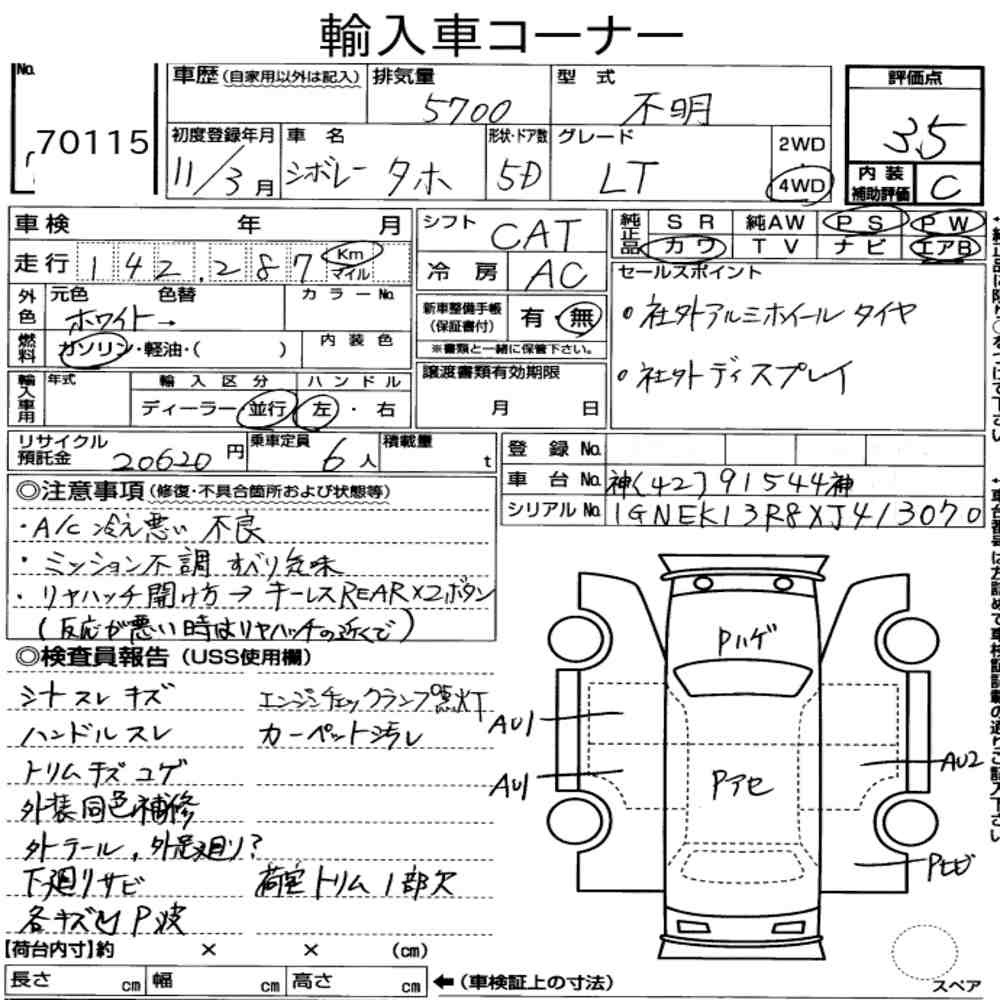 輸入車コーナー
No. 70115
車歴(自家用以外は記入) 排気量 5700 型式 不明
評価点 3.5
初度登録年月 11/3月 車名 シボレー タホ 形状・ドア数 5D グレード LT 2WD 4WD
内装補助評価 C
車検 年 月
シフト CAT
純正品 SR 純AW PS PW
カワ TV ナビ エアB
走行 142,287 Km マイル
冷房 AC
セールスポイント
外色 元色 色替 カラーNo.
ホワイト→
新車整備手帳(保証書付) 有・無
※書類と一緒に保管下さい。
○社外アルミホイール タイヤ
燃料 ガソリン・軽油・( ) 内装色
○社外ディスプレイ
輸入車用 年式 輸入区分 ハンドル
ディーラー 並行 左・右
譲渡書類有効期限
月 日
リサイクル預託金 20620円 乗車定員 6人 積載量 t
登録No.
車台No. 神(42)91544神
シリアルNo. 1GNEK13R8XJ413070
◎注意事項(修復・不具合箇所および状態等)
・A/C 冷え悪い 不良
・ミッション不調 すべり気味
・リヤハッチ開け方→キーレスREAR×2ボタン
(反応が悪い時はリヤハッチの近くで)
◎検査員報告(USS使用欄)
シートスレ キズ エンジンチェックランプ点灯
ハンドルスレ カーペット汚レ
トリムキズ コゲ
外装同色補修
外テール、外足廻り?
下廻りサビ 荷室トリム1部欠
各キズ凹 P波
Pハゲ
AU1
AU1
Pアセ
AU2
Pヒビ
【荷台内寸】約 × × (cm)
長さ cm 幅 cm 高さ cm ←(車検証上の寸法)
スペア